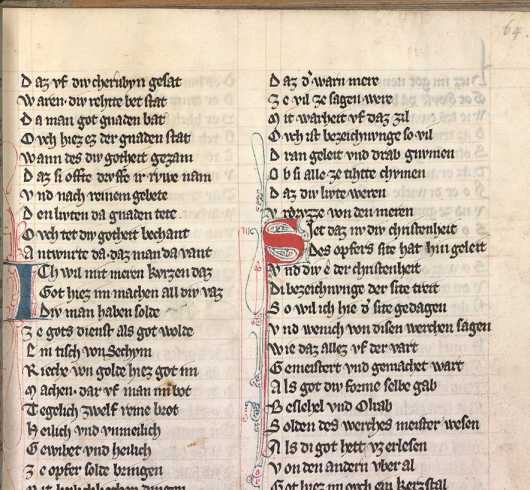 64.
Daz vf diw cherubyn gesat
Waren· diw rehte bet stat
Da man got gnaden bat
Ovch hiez ez der gnaden stat
Wann des diw gotheit gezam
Daz si offte derffe ir rwe nam
Vnd nach reinem gebete
Den livten da gnaden tete
Ovch tet diw gotheit bechant
Antwurte da· daz man da vant
Ich wil mit meren kvrzen daz
Got hiez im machen all div vaz
Div man haben solde
Ze gots dienst als got wolde
Ein tisch von Sechym
Rieche von golde hiez got im
Machen· dar vf man im bot
Tegelich zwelf reine brot
Heilich vnd vnmeilich
Gewihet vnd heilich
Ze opfer solde bringen
Daz d' warn mere
Ze vil ze sagen were
Mit warheit vf daz zil
Ovch ist bezeichnvnge so vil
Dran geleit vnd drab
Ob si alle ze tihtte chvmen
Daz div livte weren
von den meren
Sjet daz in div christenheit
Des opfers site hat hin geleit
Vnd div e der christenheit
Di bezeichnvnge der site treit
So wil ich hie d' site gedagen
Vnd wenich von disen werchen sagen
Wie daz allez vf der vart
Gemeistert vnd gemachet wart
Als got div forme selbe gab
Beselehel vnd Oliab
Solden des werches meister wesen
Als di got hett vz erlesen
Von den andern vber al
Got hiez im ovch ein kerzstal